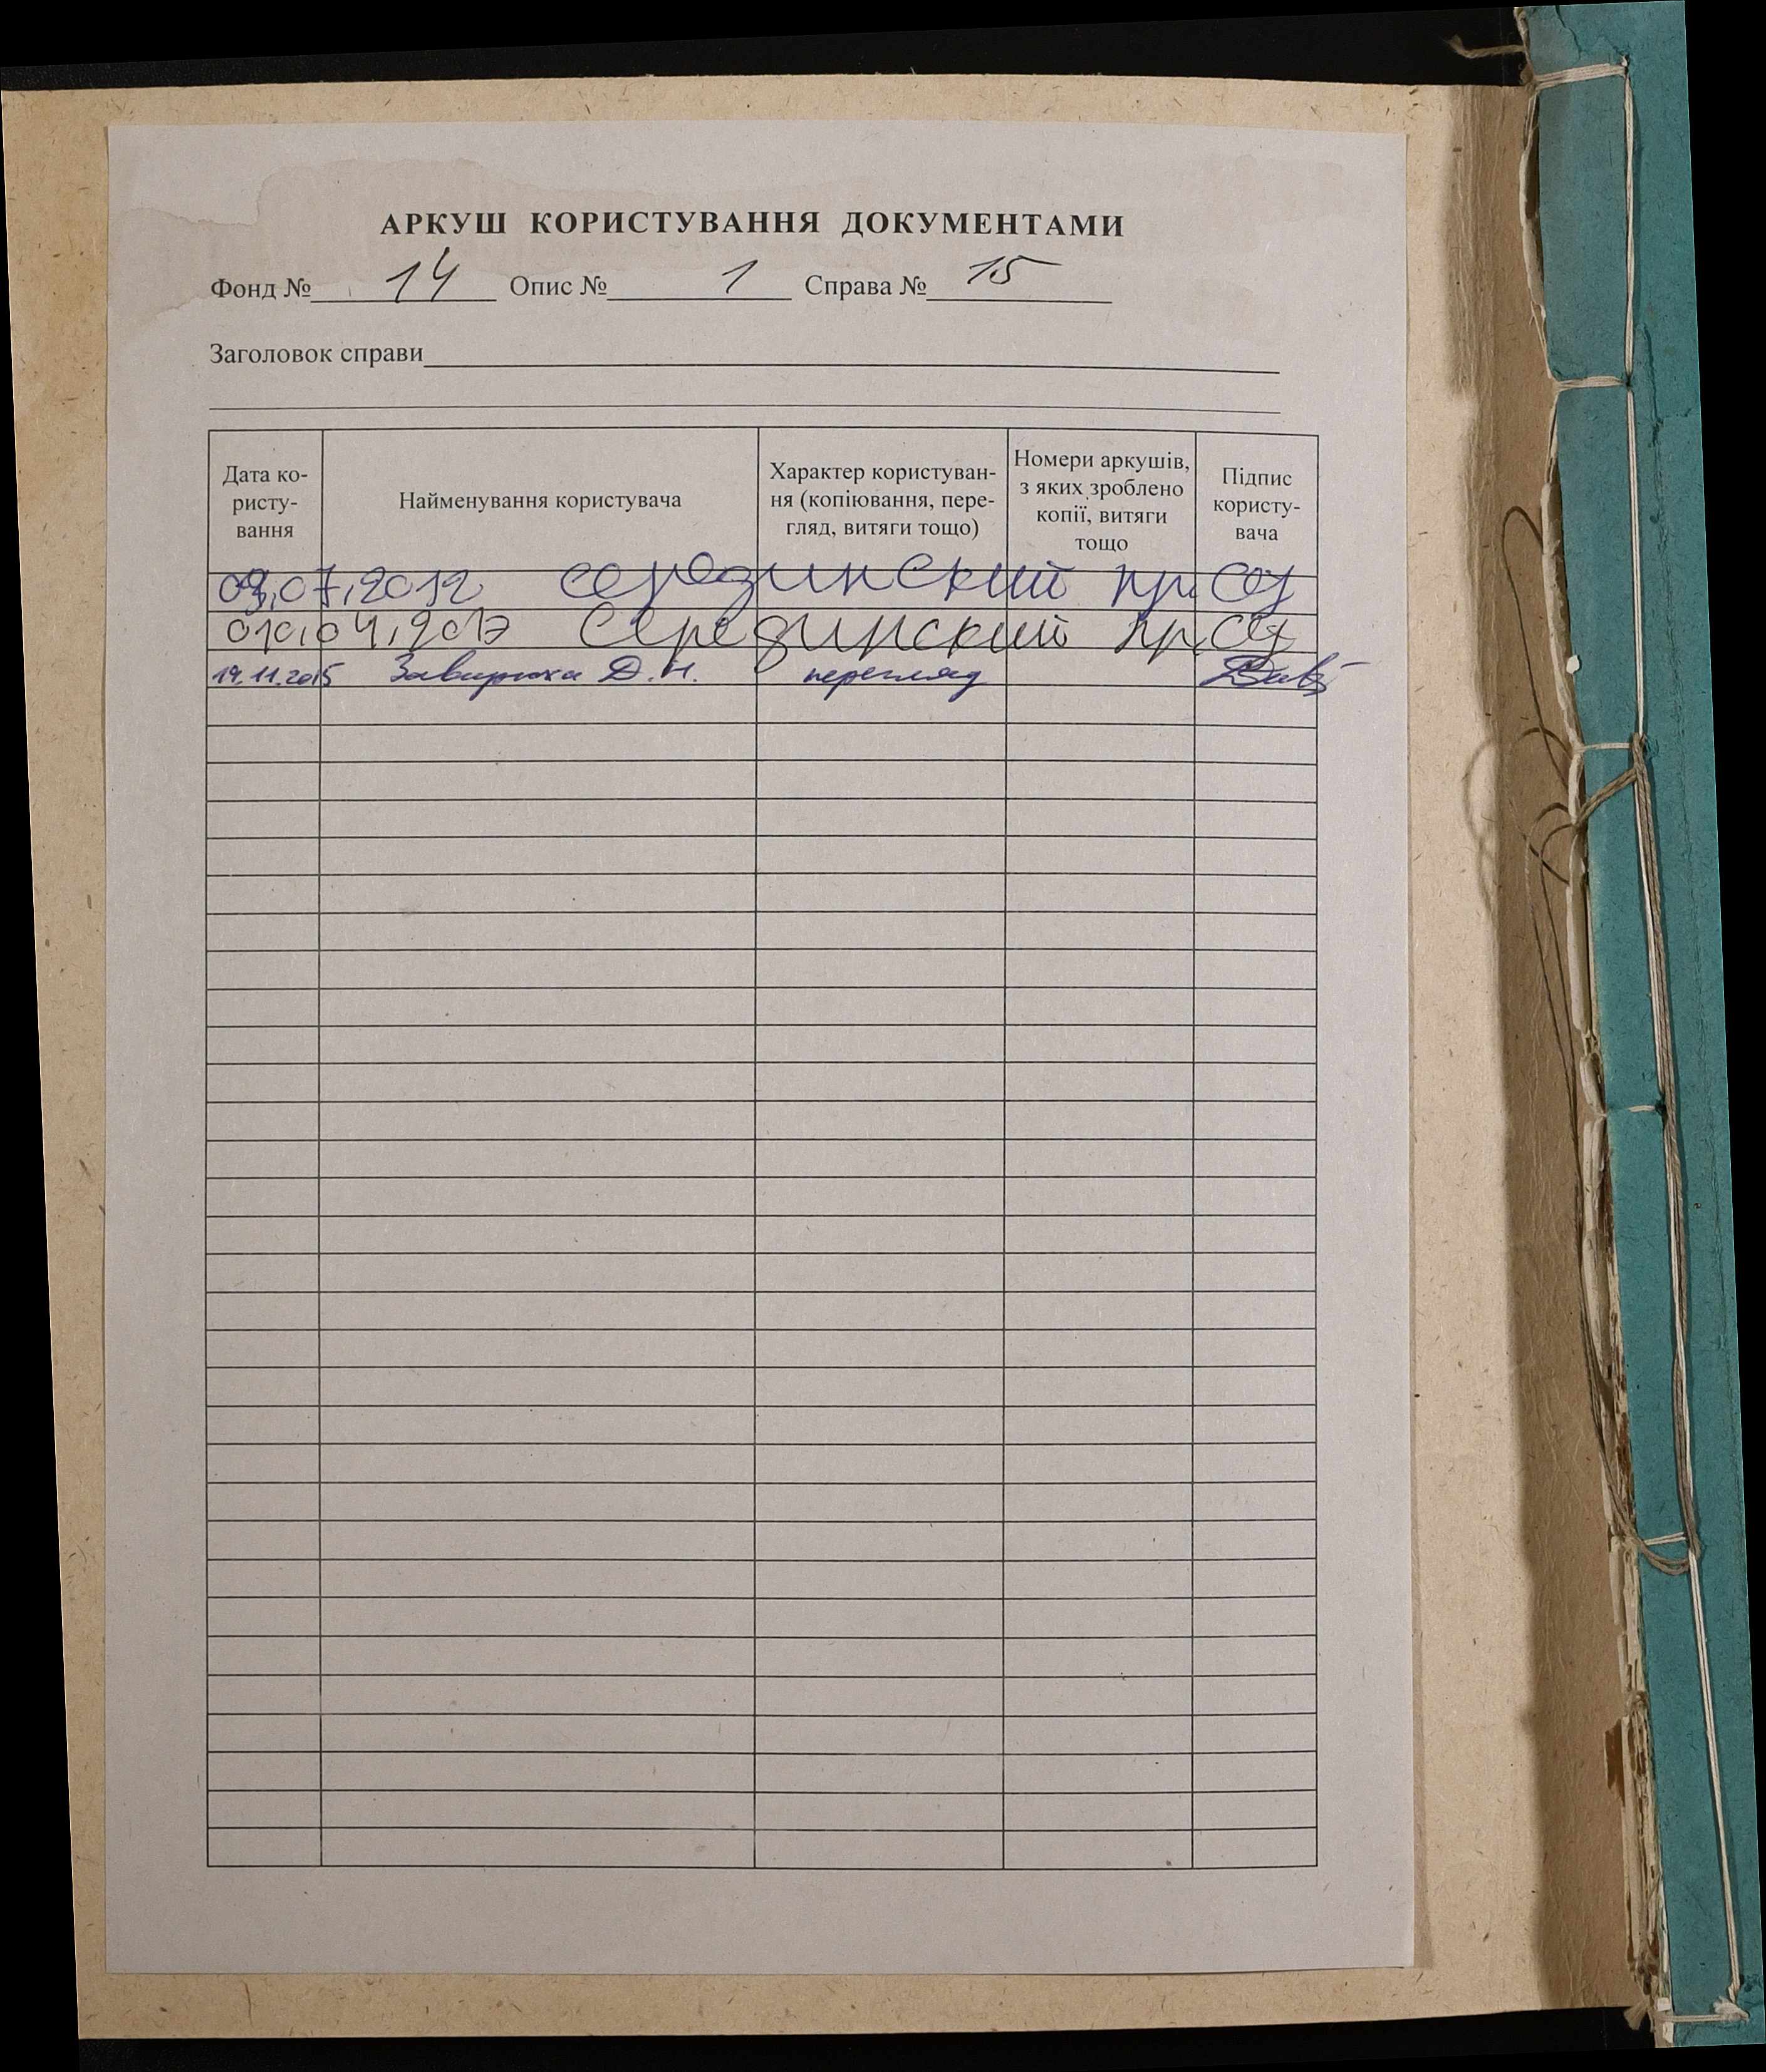 АРКУШ КОРИСТУВАННЯ ДОКУМЕНТАМИ
Фонд № 14 Опис № 1 Справа № 15
Заголовок справи
Дата ко-
ристу-
вання
Найменування користувача
Характер користуван-
ня (копіювання, пере-
гляд, витяги тощо)
Номери аркушів,
з яких зроблено
копії, витяги
тощо
Підпис
користу-
вача
07,2012 середзинский пр
04,2013 Середзинский пр
19.11.2015 Завирюха Д.Н. перегляд